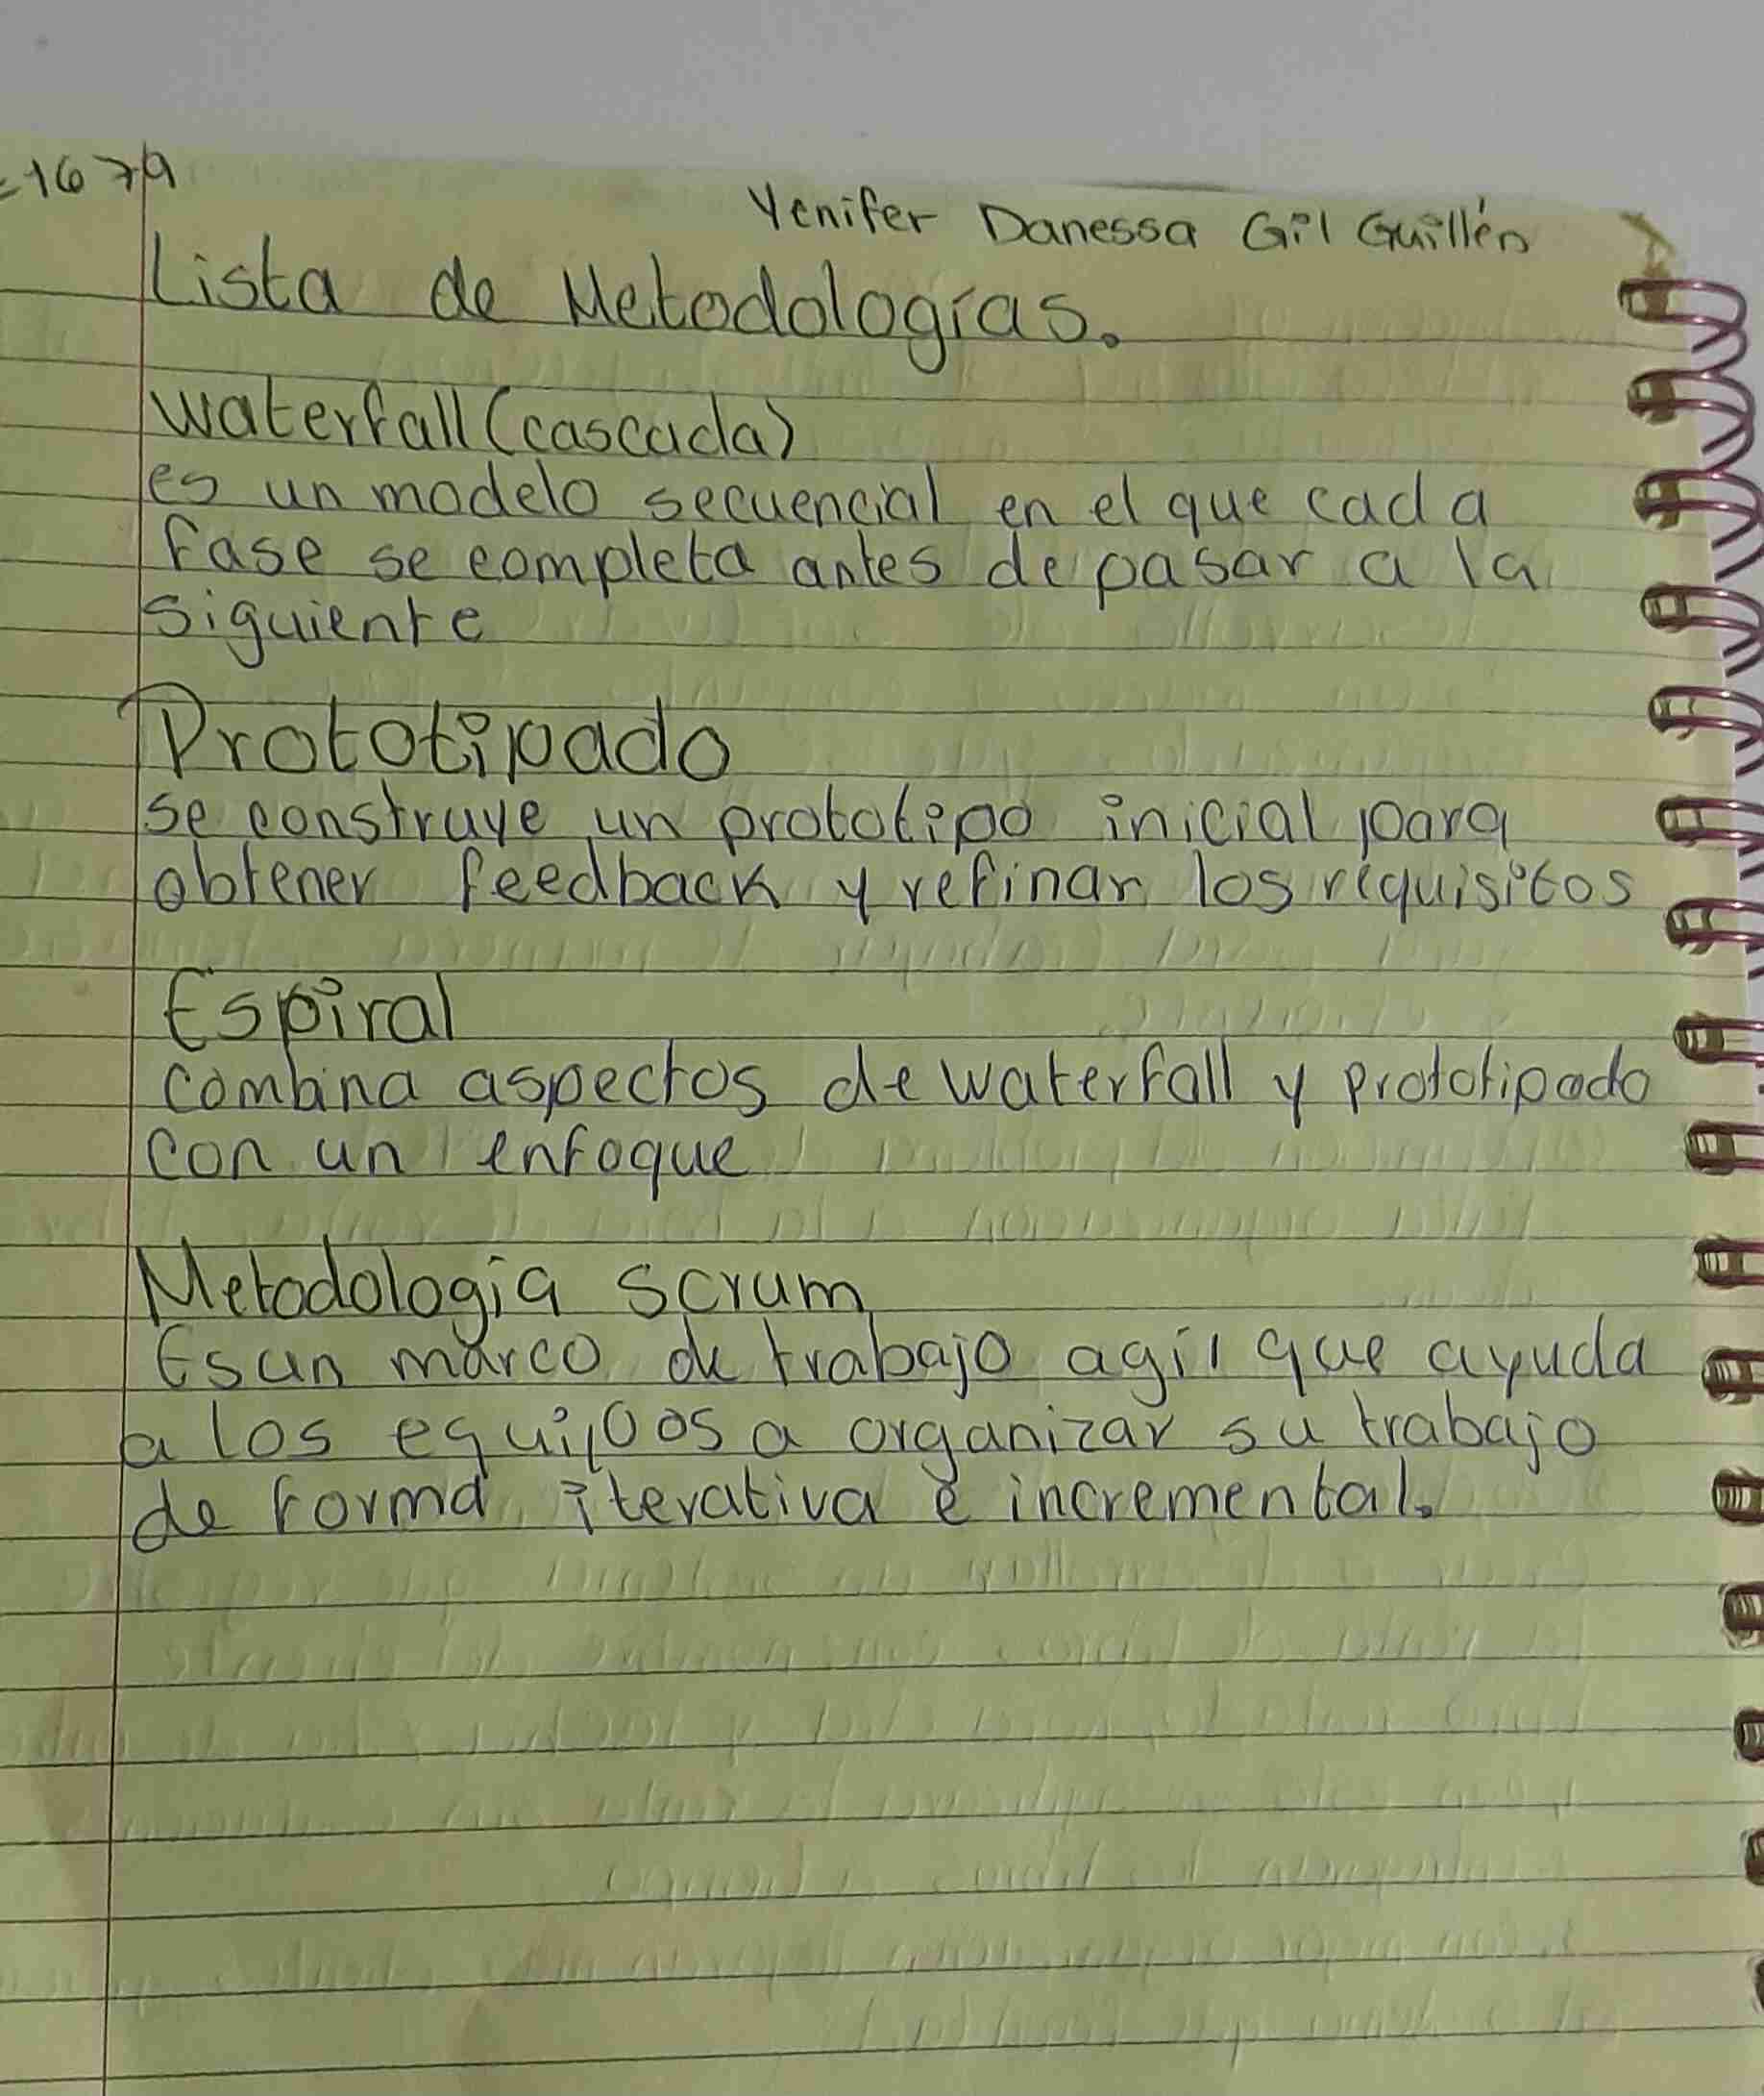 =1679
Yenifer Danessa Gil Guillén
Lista de Metodologías.
waterfall (cascada)
es un modelo secuencial en el que cada
fase se completa antes de pasar a la
siguiente
Prototipado
se construye un prototipo inicial para
obtener feedback y refinar los requisitos
Espiral
combina aspectos de waterfall y prototipado
con un enfoque
Metodologia scrum
Es un marco de trabajo agíl que ayuda
a los equipos a organizar su trabajo
de forma iterativa e incremental.